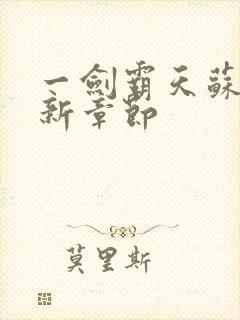 一劍霸天蘇
新章節
莫里斯